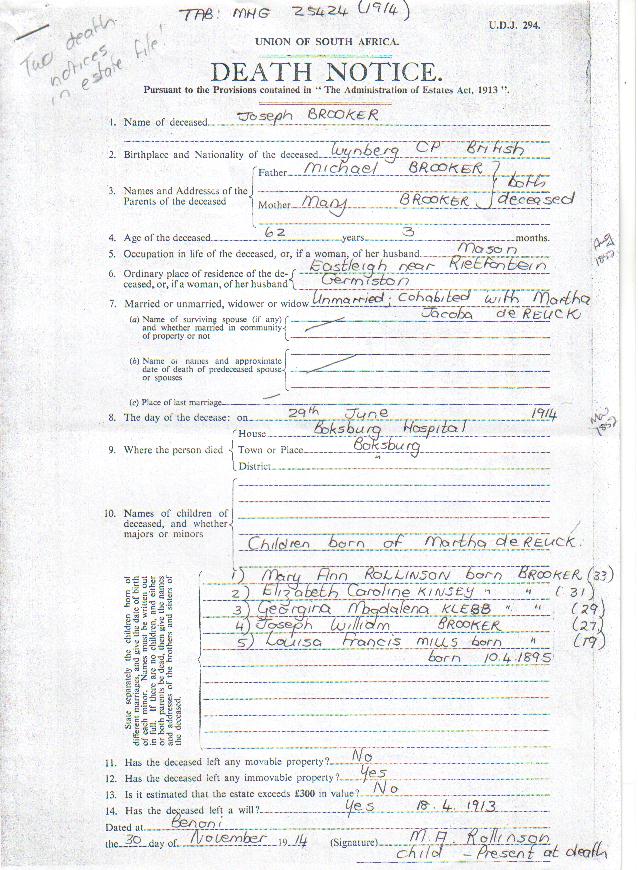 TAB: MHG 25424 (1914)
U.D.J. 294.
Two death
notices
in estate file!
UNION OF SOUTH AFRICA.
DEATH NOTICE.
Pursuant to the Provisions contained in "The Administration of Estates Act, 1913".
1. Name of deceased Joseph BROOKER
2. Birthplace and Nationality of the deceased Wynberg CP British
3. Names and Addresses of the Parents of the deceased
Father Michael BROOKER
Mother Mary BROOKER
both deceased
4. Age of the deceased 62 years 3 months.
5. Occupation in life of the deceased, or, if a woman, of her husband Mason
6. Ordinary place of residence of the de-
ceased, or, if a woman, of her husband
Eastleigh near Rietfontein
Germiston
Aug
1852
7. Married or unmarried, widower or widow Unmarried; Cohabited with Martha
Jacoba de REUCK
(a) Name of surviving spouse (if any)
and whether married in community
of property or not
(b) Name or names and approximate
date of death of predeceased spouse
or spouses
(c) Place of last marriage
8. The day of the decease: on 29th June 1914
1852
9. Where the person died
House Boksburg Hospital
Town or Place Boksburg
District "
10. Names of children of
deceased, and whether
majors or minors
Children born of Martha de REUCK.
State separately the children born of
different marriages, and give the date of birth
of each minor. Names must be written out
in full. If there are no children, and either
or both parents be dead, then give the names
and addresses of the brothers and sisters of
the deceased.
1) Mary Ann ROLLINSON born BROOKER (33)
2) Elizabeth Caroline KINSEY " " (31)
3) Georgina Magdalena KLEBB " " (29)
4) Joseph William BROOKER (27)
5) Louisa Francis MILLS born " (19)
born 10.4.1895
11. Has the deceased left any movable property? No
12. Has the deceased left any immovable property? Yes
13. Is it estimated that the estate exceeds £300 in value? No
14. Has the deceased left a will? Yes 18.4.1913
Dated at Benoni
the 30 day of November 1914 (Signature) M.A. Rollinson
child - Present at death